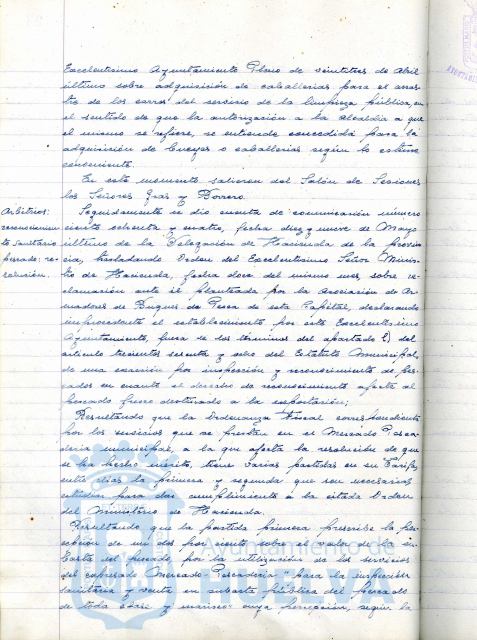 Excelentisimo Ayuntamiento Pleno de veintitres de Abril
último sobre adquisición de caballerias para el arras-
tre de los carros del servicio de la limpieza pública, en
el sentido de que la autorización a la Alcaldia a que
el mismo se refiere, se entienda concedida para la
adquisición de bueyes o caballerias según lo estime
conveniente.
En este momento salieron del Salón de Sesiones
los Señores Gras y Borrero.
Arbitrios:
reconocimien-
to sanitario
pescado; re-
solución.
Seguidamente se dio cuenta de comunicación número
ciento ochenta y cuatro, fecha diez y nueve de Mayo
último de la Delegación de Hacienda de la provin-
cia, trasladando Orden del Excelentisimo Señor Minis-
tro de Hacienda, fecha doce del mismo mes, sobre re-
clamación ante él planteada por la Asociación de Ar-
madores de Buques de Pesca de esta Capital, declarando
improcedente el establecimiento por este Excelentisimo
Ayuntamiento, fuera de los términos del apartado E) del
articulo trescientos sesenta y ocho del Estatuto Municipal,
de una exacción por inspección y reconocimiento de pes-
cados en cuanto el derecho de reconocimiento afecta al
pescado fresco destinado a la exportación;
Resultando que la Ordenanza Fiscal correspondiente
por los servicios que se prestan en el Mercado Pesca-
deria municipal, a la que afecta la resolución de que
se ha hecho mérito, tiene varias partidas en su Tarifa,
entre ellas la primera y segunda que son necesarias
estudiar para dar cumplimiento a la citada Orden
del Ministerio de Hacienda.
Resultando que la partida primera prescribe la per-
cepción de un dos por ciento sobre el valor en la su-
basta del pescado por la utilización de los servicios
del expresado Mercado-Pescaderia "para la inspección
sanitaria y venta en subasta pública del pescado
de toda clase y marisco" cuya percepción, según la
Ayuntamiento de
HUELVA